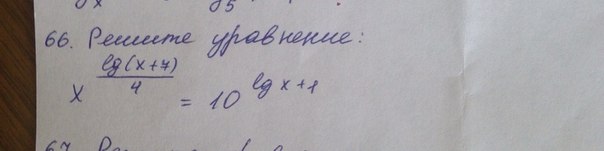 66. Решите уравнение:
x^(lg(x+7)/4) = 10^(lg x+1)
67.